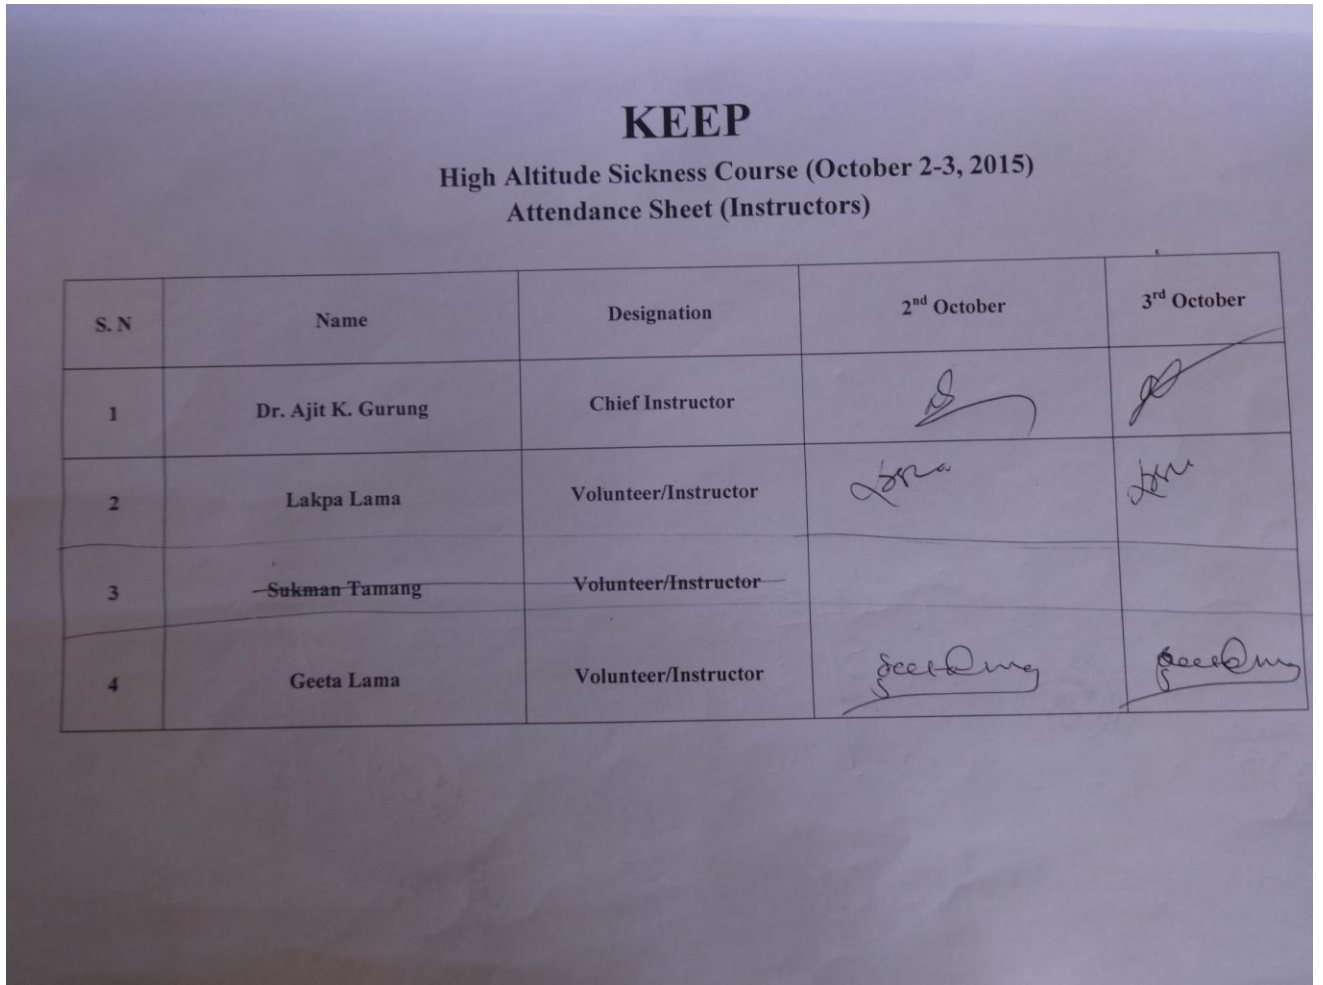 KEEP
High Altitude Sickness Course (October 2-3, 2015)
Attendance Sheet (Instructors)
S. N Name Designation 2nd October 3rd October
1 Dr. Ajit K. Gurung Chief Instructor
2 Lakpa Lama Volunteer/Instructor
3 Sukman Tamang Volunteer/Instructor
4 Geeta Lama Volunteer/Instructor